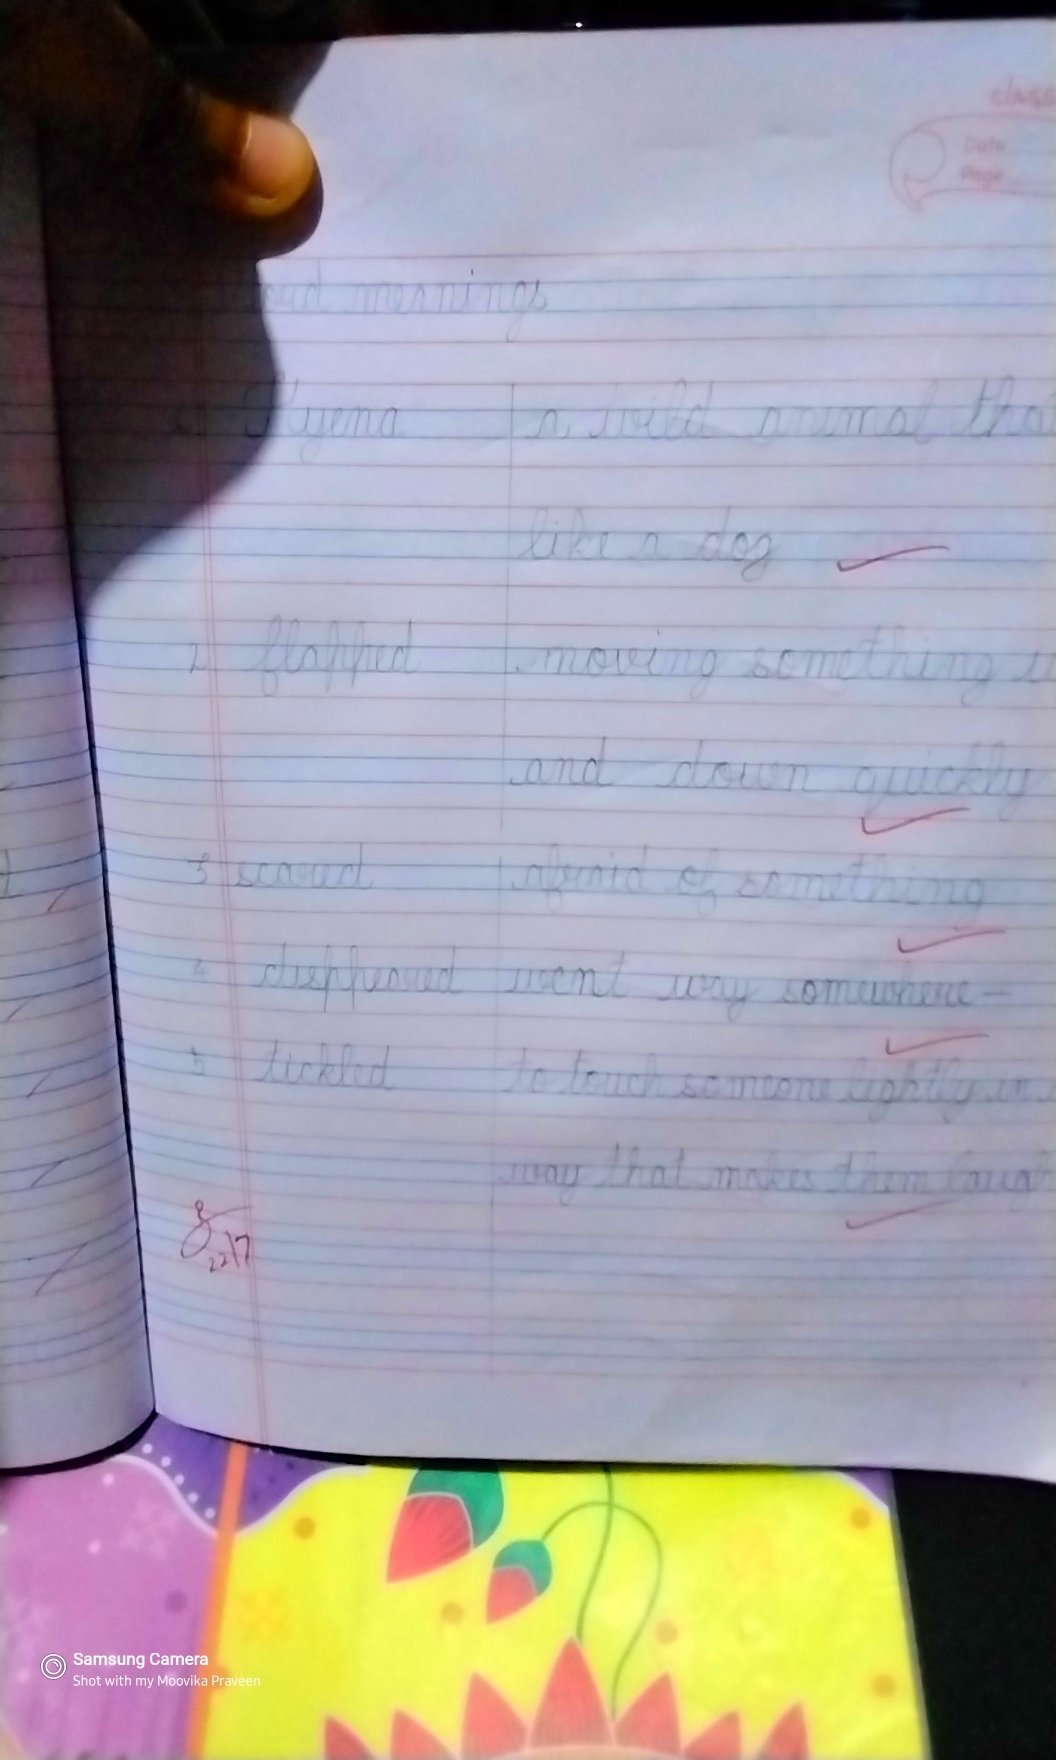 class
Date
Page
meanings
Hyena a wild animal tha
like a dog
2 flapped moving something u
and down quickly
3 scared afraid of something
4 disppeared went way somewhere -
5 tickled to touch someone lightly in
way that makes them laugh
22/7
Samsung Camera
Shot with my Moovika Praveen